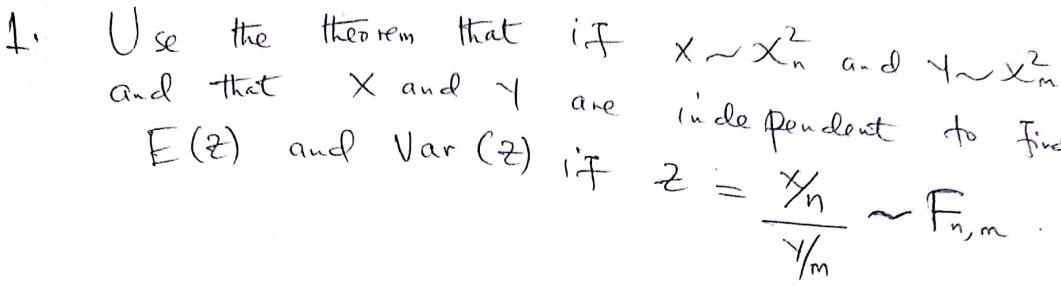 1. Use the theorem that if X ~ X²ₙ and Y ~ X²ₘ
and that X and Y are independent to find
E(Z) and Var(Z) if Z = (X/n)/(Y/m) ~ Fₙ,ₘ.